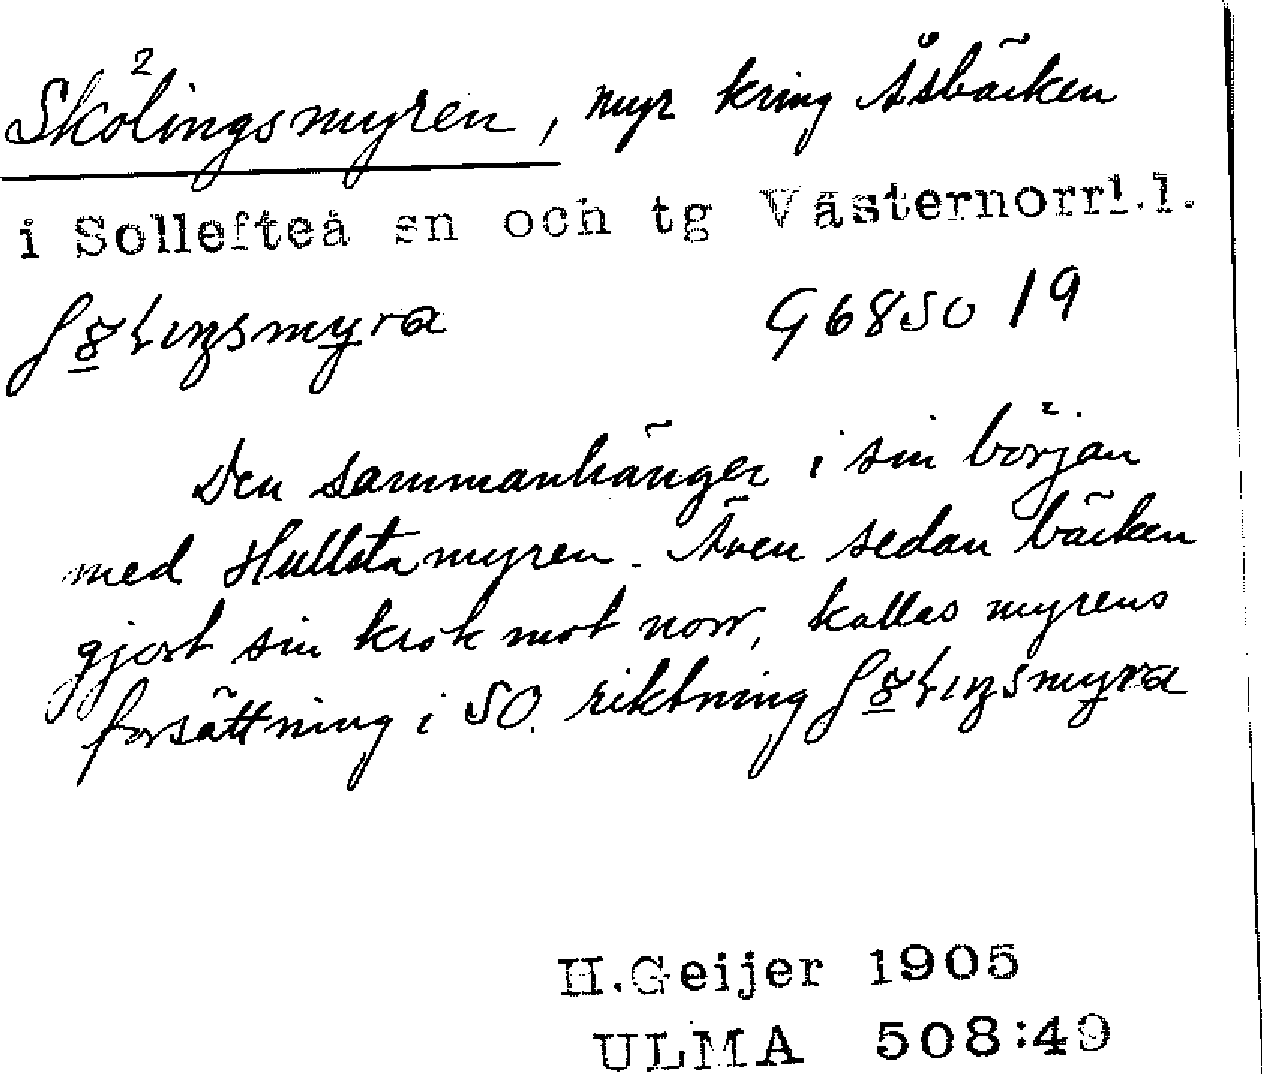 Skölingsmyren, myr kring Åsbäcken
i Sollefteå sn och tg Västernorrl.l.
G6850 19
Den sammanhänger i sin början
med Hullstamyren. Även sedan bäcken
gjort sin krok mot norr, kallas myrens
forsättning i SO. riktning
H.Geijer 1905
ULMA 508:49